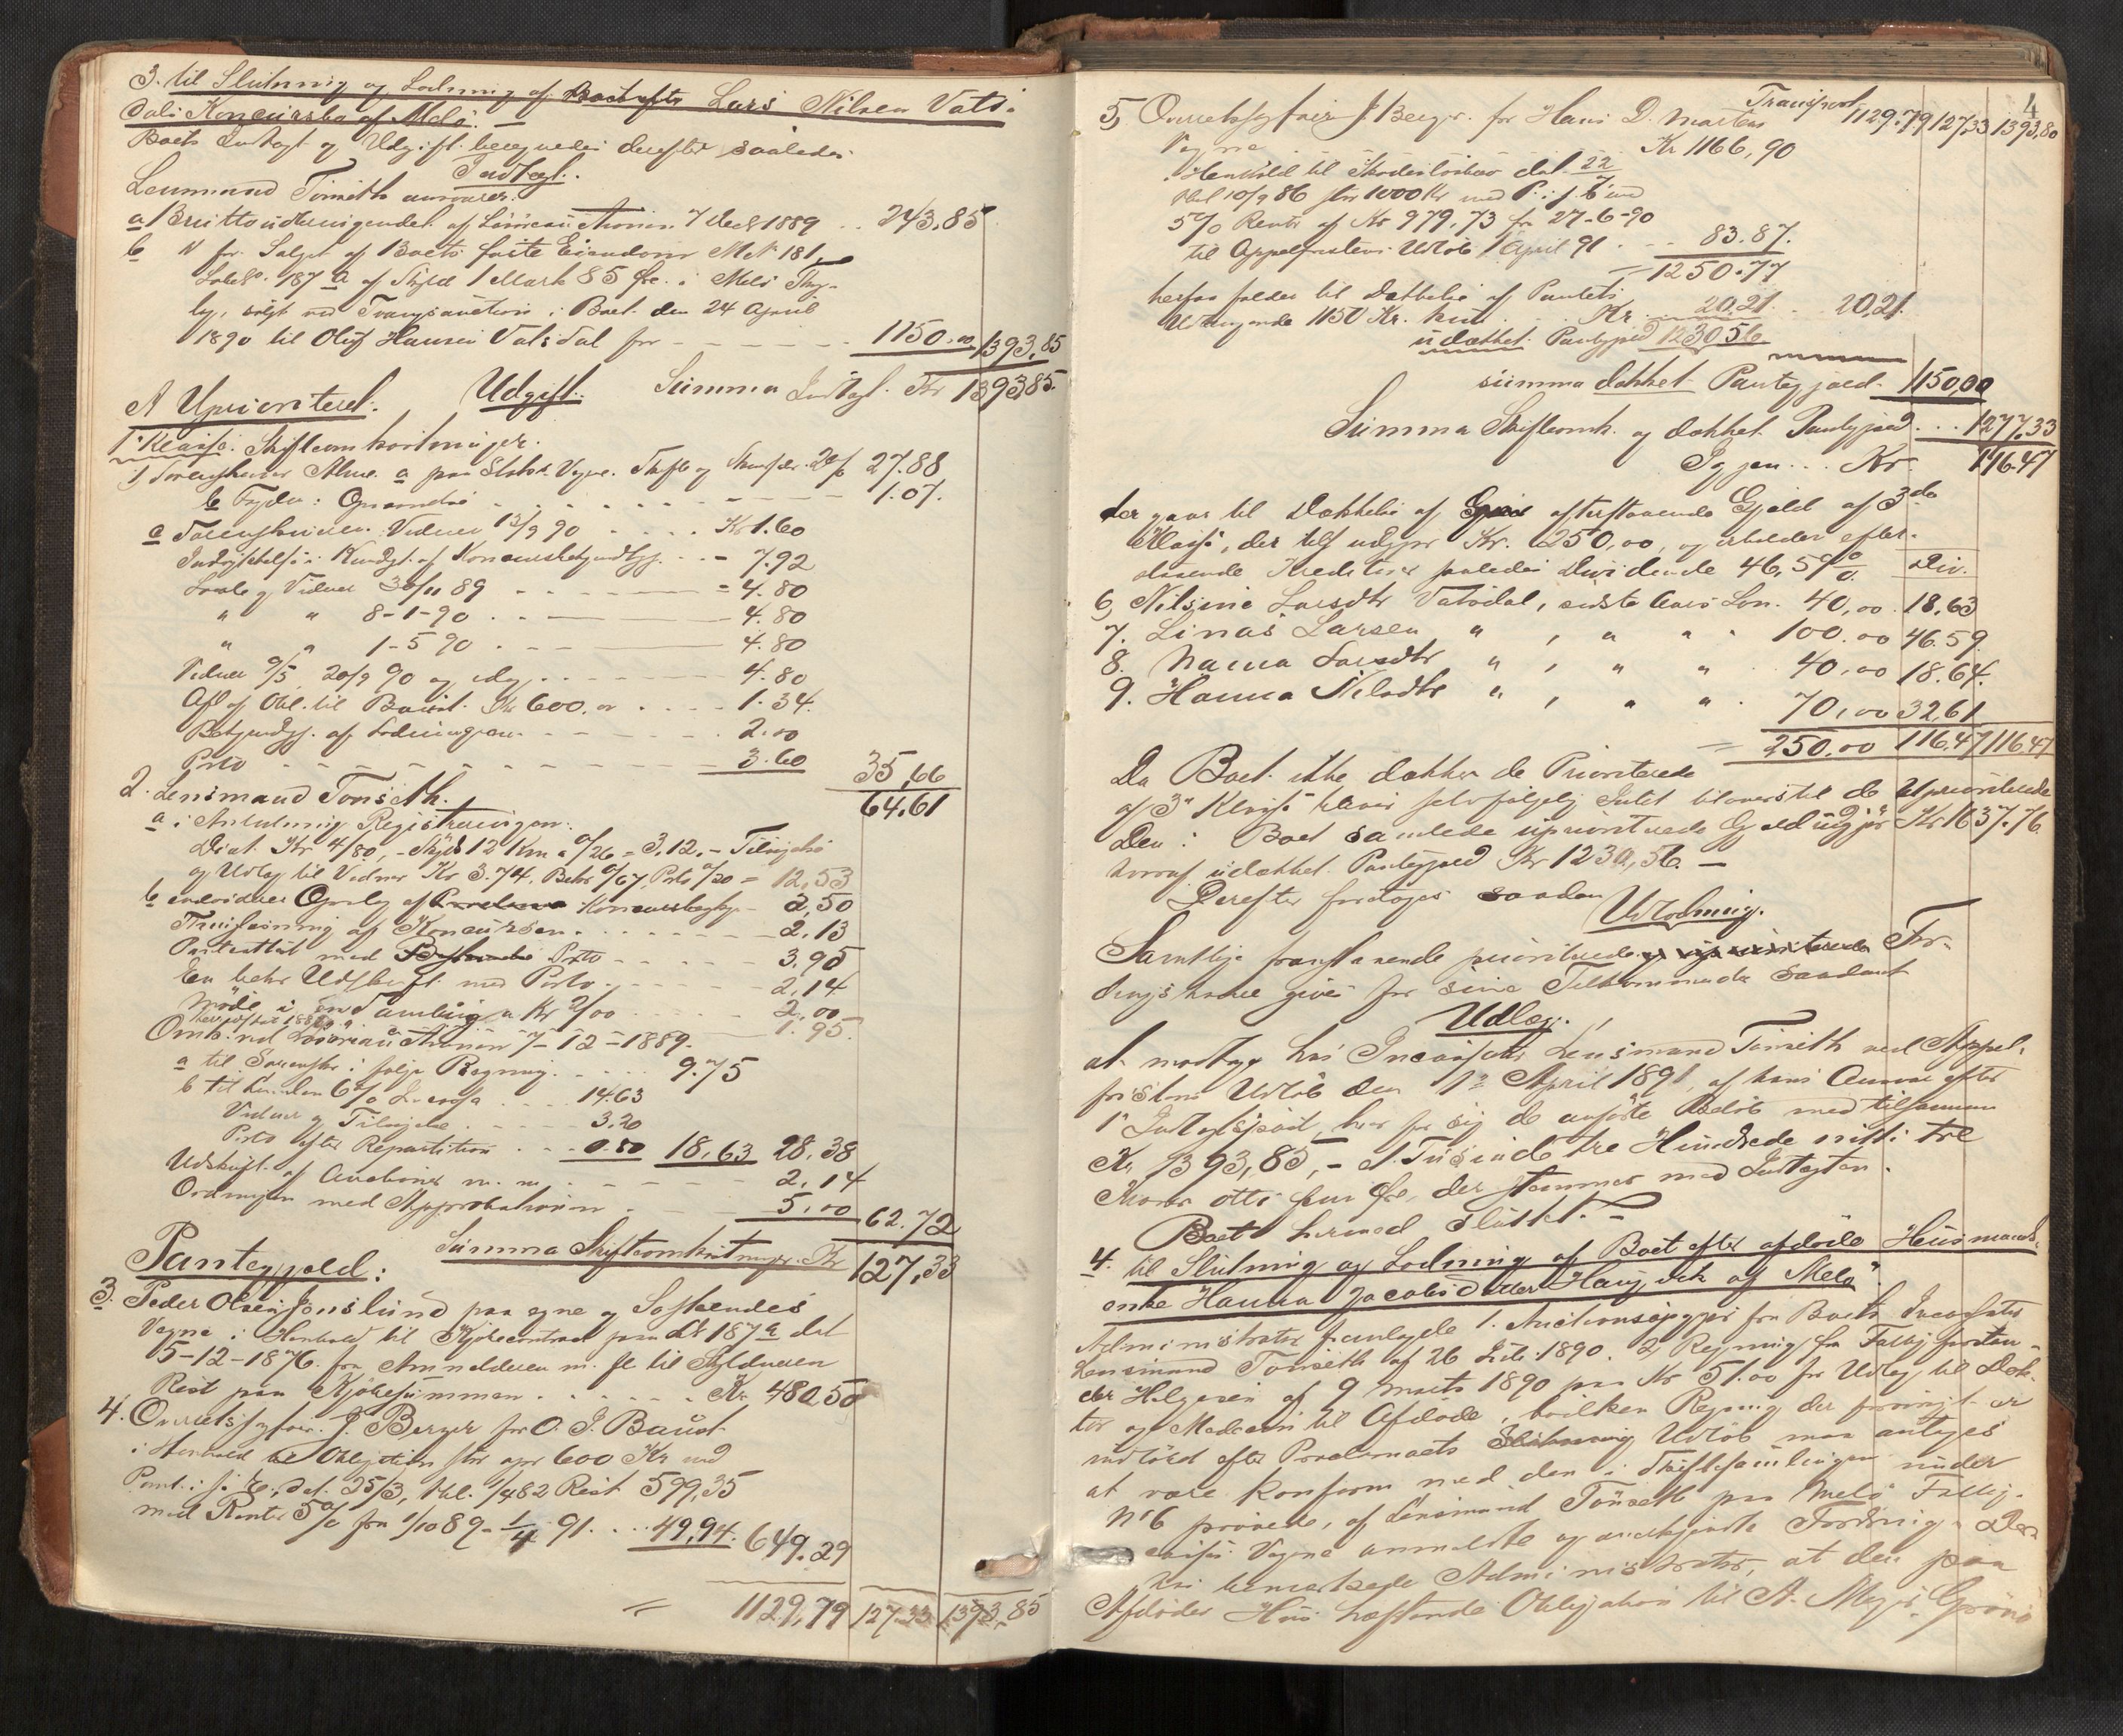 3. til Slutning og Lodning af Boet efter Lars Nilsen Vats-
dals Konkursbo af Melø.
Boets Indtægt og Udgift beregnedes derefter saaledes
Indtægt.
Lensmand Tønseth ansvarer:
a Brutto udbringendet af Løsøreauktionen 7 Decb 1889 .. 243,85
b " for Salget af Boets faste Eiendom M.N. 181,
Løbeno. 187 a af Skyld 1 Mark 85 Øre i Melø Thg-
lg, solgt ved Tvangsauction i Boet den 24 April
1890 til Oluf Hansen Vatsdal for - - - - - 1150.00 1393,85
A Uprioriteret. Udgift. Summa Indtægt. Kr 1393,85.
1ste Klasse. Skifteomkostninger.
1) Sorenskriver Alme. a paa Statsk. Vegne. Skifte og 27.88
b Egder: 1.07.
c Sorenskriveren. Vidner 13/9 90 . . . . Kr 1.60
Indrykkelse i Kundgt. af Konkursbekjendtgj. . . - 7.92
Lovb. og Vidner 30/11 89 - - - - - = 4.80
" " 8-1-90 . . - - 4.80
" " 1-5 90 . - - - 4.80
Vidner 9/5, 20/9 90 og idag . . - - - 4.80
Afl af Obl. til Baust. Kr 600.00 . . . . 1.34.
Bekjendtgj. af Lodningen - - - - - 2.00
Porto - - - - - - - - - 3.60 35,66
2. Lensmand Tønseth. 64.61
a i Anledning Registreringen:
Diæt. Kr 4/80, - Skyds 12 Km a 0/26 = 3.12. - Tilsigelse
og Udlæg til Vidner Kr 3.74. Bekr 0/67. Porto 0/20 = 12,53
b endvidere Opslag af Konkursbegj. - 2,50
Thinglæsning af Konkursen . . . . . . . - 2.13
Panteattest med Porto - - - - - 3.95
En bekr Udskrift med Porto . . - - - 2.14
Møde i end Samling a Kr 2/00 . . . . . 2,00
1.95.
Omk. ved Løsøreauktionen 7-12-1889.
a til Sorenskr. i følge Regning. . . . . 9.75
b til Lensmanden 6% Incassa . . . . 14.63
Vidner og Tilsigelse . . . . . 3.20
Porto efter Repartition . . - 0.80 18,63 28,38
Udskrift af Auctionen m. m. - - - - - 2.14
Ordningen med Approbationen . - - 5.00 62.72
Summa Skifteomkostninger. Kr 127,33
Pantegjæld:
3. Peder Olsen Jonslund paa egne og Søskendes
Vegne i Henhold til Kjøbecontract paa LN 187 a dat
5-12-1876. fra Anmelderen m. fl til Skyldneren
Rest paa Kjøbesummen . . . . . . . Kr. 480,50
4. Overretssagfører J. Berger for O. J. Baust
i Henhold til Obligation stor opr 600 Kr med
Pant. i f. E. dat. 25/3, thl. 1/4 82 Rest 599,35
med Renter 5% fra 1/10 89 - 1/4 91. . . . 49,94. 649.29
= 1129,79 127.33 1393.85
4
Transport 1129.79 127,33 1393,80
5, Overretssagfører J Berger. for Hans D. Martens
Vegne Kr 1166,90
i Henhold til Skadesløsbrev dat. 22/7
thl 10/9 86 stor 1000 Kr med P. i f. E. med
5% Rente af Kr 979.73 fra 27-6-90
til Appelfristens Udløb 1 April 91 . - - 83.87.
= 1250.77
herfaa falder til Dækkelse af Pantets
Udbringende 1150 Kr. kun . . . Kr. 20,21. . . 20,21.
udækket Pantegjæld 1230 56
summa dækket Pantegjæld. 1150,00
Summa Skifteomk. og dækket Pantegjæld . . . 1277,33
Igjen . . . Kr. 116.47
der gaar til Dækkelse af efterstaaende Gjæld af 3die
Klasse, der tils udgjør Kr. 250,00, og erholder efter-
staaende Kreditorer saaledes Dividende 46,5 8/0 %. Div.
6, Nilsine Larsdtr Vatsdal, sidste Aars Løn. 40,00 18,63
7. Linas Larsen " , " " . 100.00 46.59
8. Nanna Larsdtr " , " " . 40,00 18.64.
9. Hanna Nilsdtr " , " " . 70,00 32,61
= 250.00 116.47 116.47
Da Boet ikke dækker de Prioriterede
af 3die Klasse bliver selvfølgelig Intet tilovers til de Uprioriterede
Den i Boet samlede uprioriterede Gjæld udgjør Kr 1637.76.
hvoraf udækket Pantegjæld Kr 1230,56. -
Derefter foretoges saadan Udlodning.
Samtlige foranstaaende prioriterede og uprioriterede For-
dringshavere gives for sine Tilkommender saadant
Udlæg.,
at modtage hos Incassator Lensmand Tønseth ved Appel-
fristens Udløb den 1ste April 1891, af hans Ansvar efter
1ste Indtægtspost, hver for sig de anførte Beløb med tilsammen
Kr. 1393,85, - et Tusinde tre Hundrede nitti tre
Kroner otti fem Øre, der stemmer med Indtægten.
Boet hermed sluttet. -
4. til Slutning og Lodning af Boet efter afdøde Husmands-
enke Hanna Jacobsdatter Haugvik af Melø.
Administrator fremlagde 1. Auctionsopgjør fra Boets Incassator
Lensmand Tønseth af 26 Febr. 1890. 2 Regning fra Fattigforstan-
der Helgesen af 9 Marts 1890 paa Kr 51.00 for Udlæg til Dok-
tor og Medecin til Afdøde, hvilken Regning der forøvrigt er
indløbet efter Proclamaets Udløb maa antages
at være konform med den i Skiftesamlingen under
No 6 prøvede, af Lensmand Tønseth paa Melø Fattig-
casses Vegne anmeldte og anerkjendte Fordring. Der-
hos bemærkede Administrator, at den paa
Afdødes Hus hæftende Obligation til A. Meyer Grønø